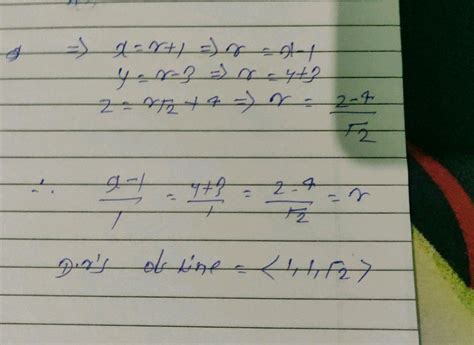 ⇒ x = r+1 ⇒ r = x-1
y = r-3 ⇒ r = y+3
z = r√2 + 7 ⇒ r = z-7/√2
∴ x-1/1 = y+3/1 = z-7/√2 = r
D.r's of line = <1,1,√2>